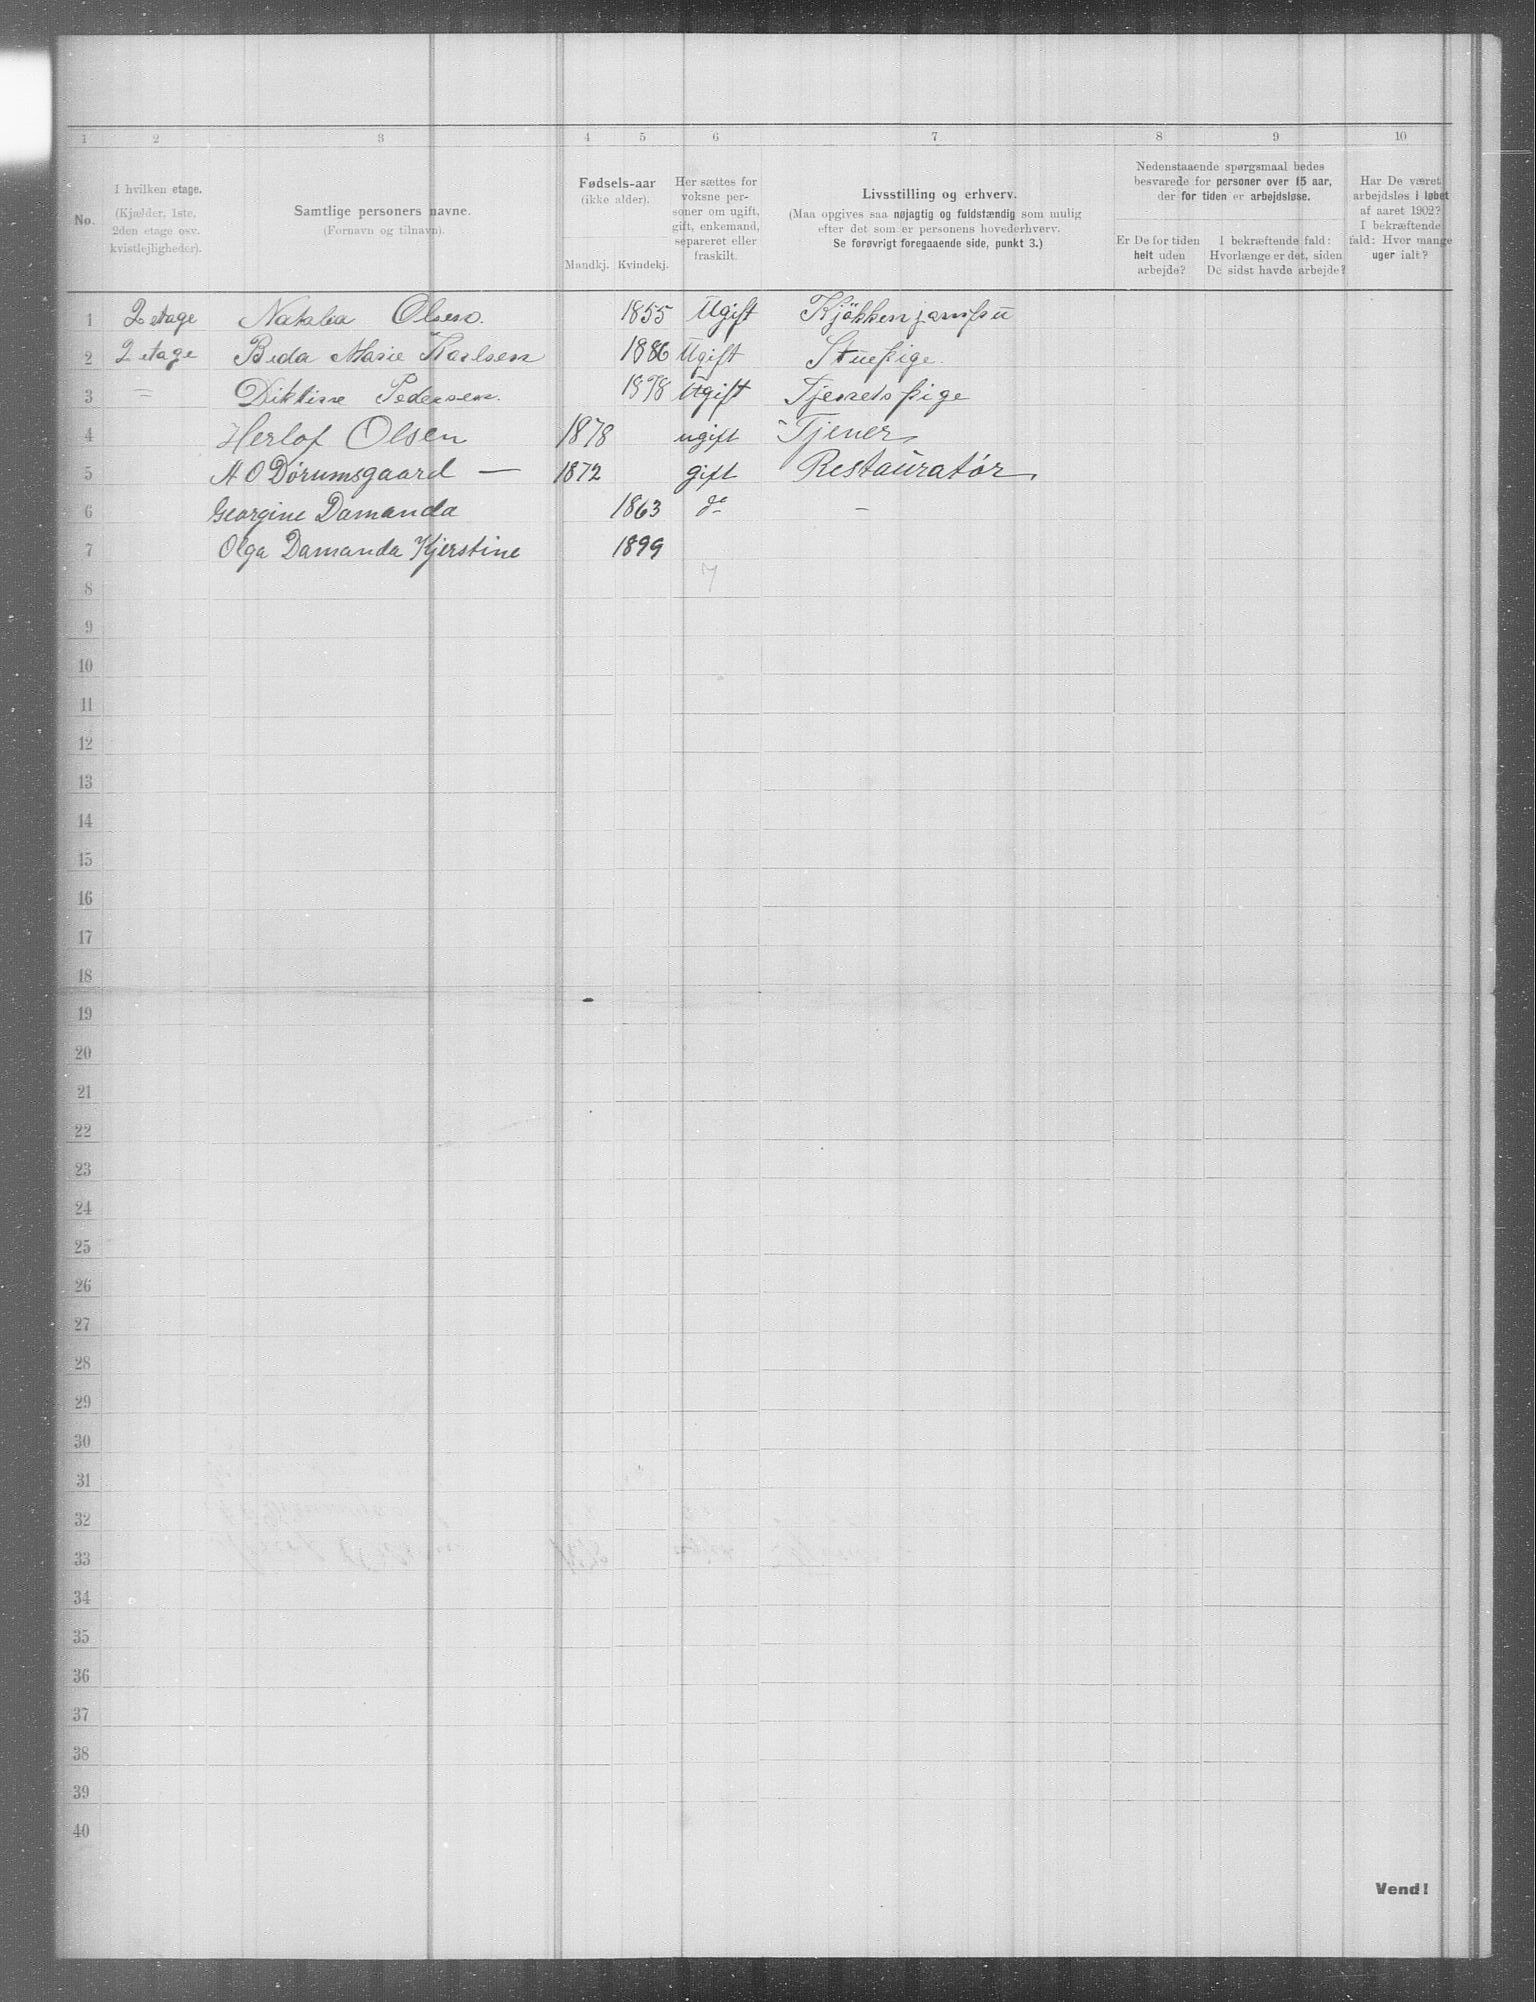 1 2 3 4 5 6 7 8 9 10
No.
I hvilken etage.
(Kjælder, 1ste,
2den etage osv.
kvistlejligheder).
Samtlige personers navne.
(Fornavn og tilnavn).
Fødsels-aar
(ikke alder).
Mandkj. Kvindekj.
Her sættes for
voksne per-
soner om ugift,
gift, enkemand,
separeret eller
fraskilt.
Livsstilling og erhverv.
(Maa opgives saa nøjagtig og fuldstændig som mulig
efter det som er personens hovederhverv.
Se forøvrigt foregaaende side, punkt 3.)
Nedenstaaende spørgsmaal bedes
besvarede for personer over 15 aar,
der for tiden er arbejdsløse.
Er De for tiden
helt uden
arbejde?
I bekræftende fald:
Hvorlænge er det, siden
De sidst havde arbejde?
Har De været
arbejdsløs i løbet
af aaret 1902?
I bekræftende
fald: Hvor mange
uger ialt?
1 2 etage Olsen. 1855 Ugift
2 2 etage Beda Marie Karlsen 1886 Ugift Stuepige.
3 = Diktine Pedersen. 1878 Ugift Tjenetspige
4 Herlof Olsen 1878 ugift Tjener
5 A O Dørumsgaard — 1872 gift Restauratør
6 Georgine Damanda 1863 do –
7 Olga Damanda Kjerstine 1899
8 7
9
10
11
12
13
14
15
16
17
18
19
20
21
22
23
24
25
26
27
28
29
30
31
32
33
34
35
36
37
38
39
40
Vend!